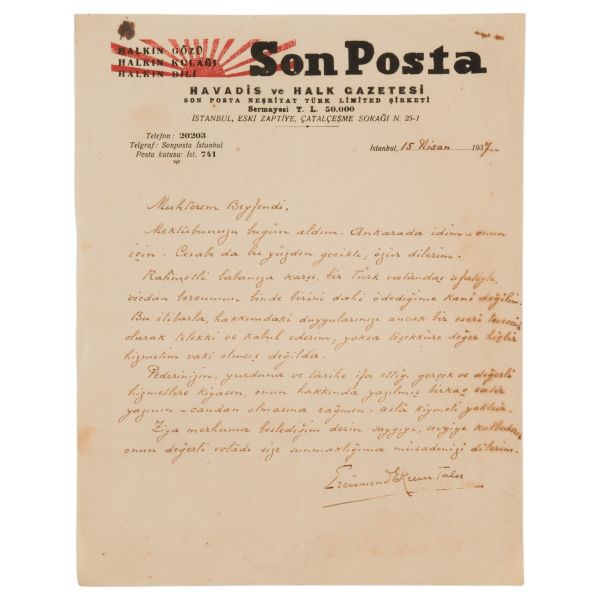 HALKIN GÖZÜ
HALKIN KULAĞI
HALKIN DİLİ
Son Posta
HAVADİS ve HALK GAZETESİ
SON POSTA NEŞRİYAT TÜRK LİMİTED ŞİRKETİ
Sermayesi T. L. 50.000
İSTANBUL, ESKİ ZAPTİYE, ÇATALÇEŞME SOKAĞI N. 25-1
Telefon: 20203
Telgraf: Sonposta İstanbul
Posta kutusu: İst. 741
İstanbul, 15 Nisan 1937
Muhterem Beyfendi,
Mektubunuzu bugün aldım. Ankarada idim onun
için. Cevabı da bu yüzden gecikti, özür dilerim.
Rahmetli babanıza karşı, bir Türk vatandaş sıfatiyle,
vicdan borcumun binde birini dahi ödediğime kani değilim.
Bu itibarla, hakkımdaki duygularınızı ancak bir eseri teveccüh
olarak telekki ve kabul ederim; yoksa teşekküre değer hiçbir
hizmetim vaki olmuş değildir.
Pederinizin, yurduna ve tarihe ifa ettiği gerçek ve değerli
hizmetlere kıyasen, onun hakkında yazılmış birkaç satır
yazının - candan olmasına rağmen - asla kıymeti yoktur.
Ziya merhuma beslediğim derin saygıyı, sevgiyi kalbeden
onun değerli evlâdı size sunmaklığıma müsadenizi dilerim.
Ercümend Ekrem Talu